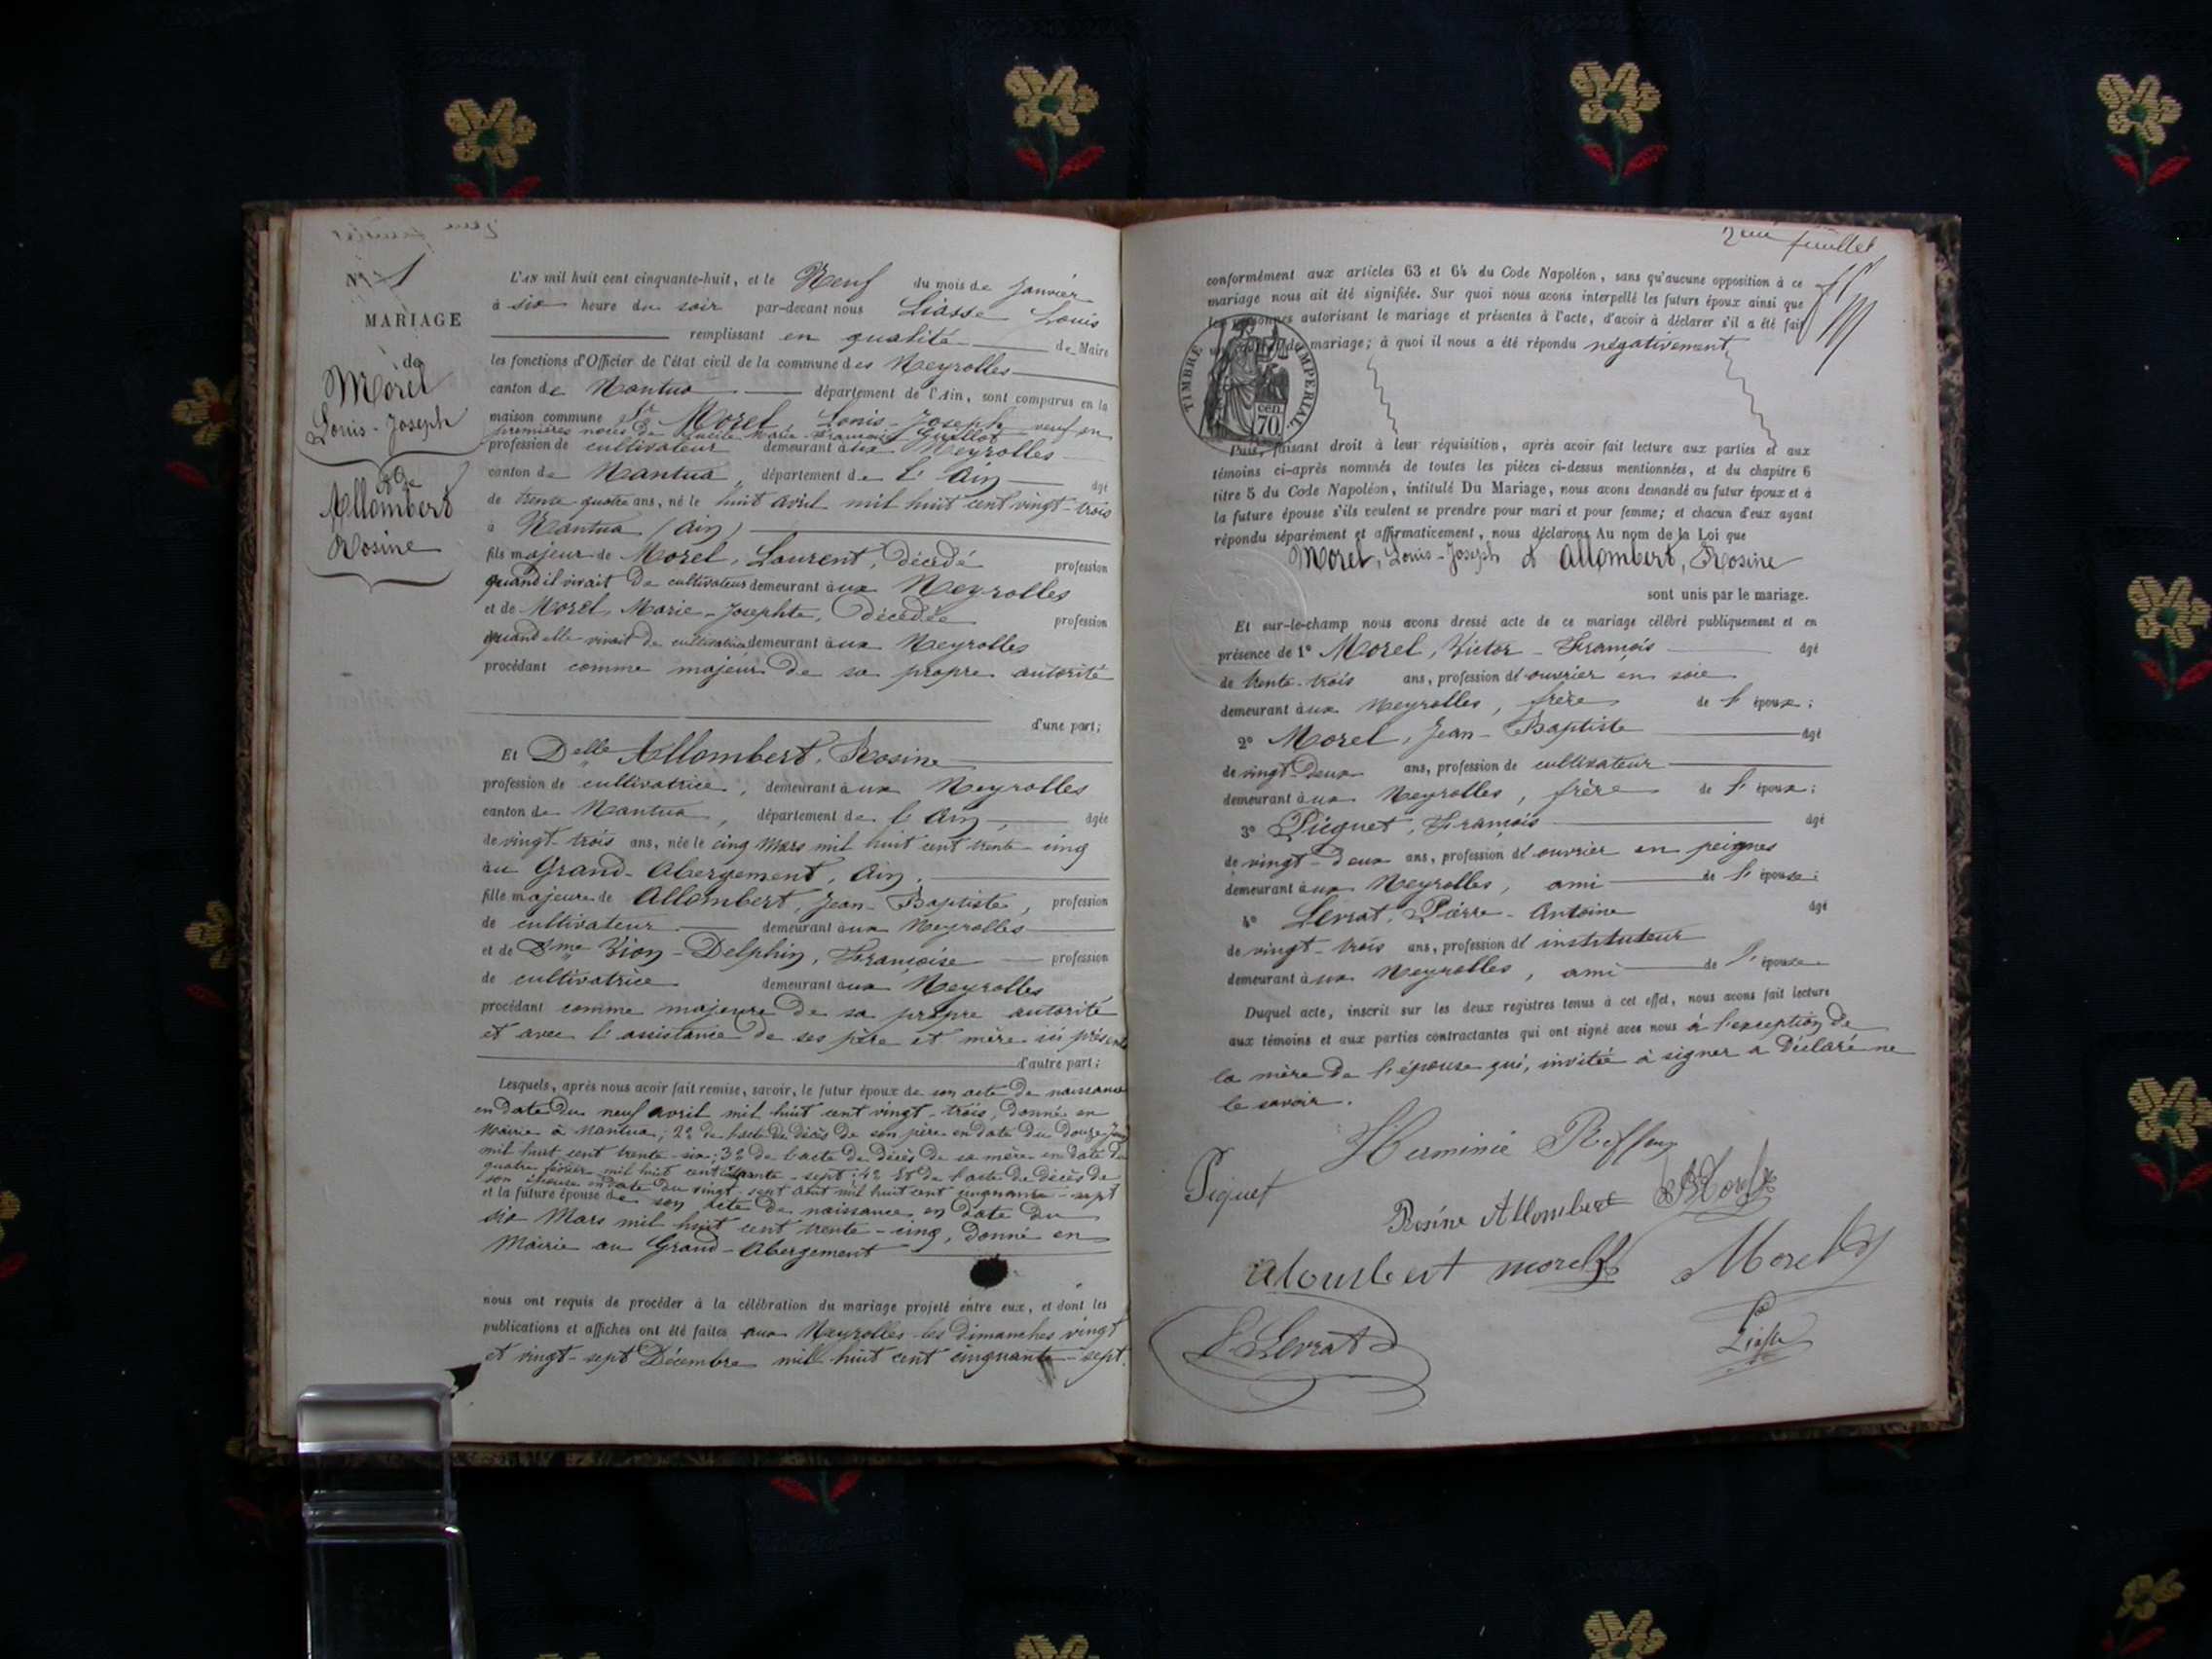 N° 1
MARIAGE
de
Morel
Louis-Joseph
&
Allombert
Rosine
L'AN mil huit cent cinquante-huit, et le Neuf du mois de Janvier
à six heure du soir par-devant nous Liasse Louis
remplissant en qualité de Maire
les fonctions d'Officier de l'état civil de la commune des Neyrolles
canton de Nantua département de l'Ain, sont comparus en la
maison commune Sr Morel, Louis-Joseph veuf en
premières noces de Marie Françoise Guillot
profession de cultivateur demeurant aux Neyrolles
canton de Nantua, département de l'Ain âgé
de trente quatre ans, né le huit avril mil huit cent vingt-trois
à Nantua (Ain)
fils majeur de Morel, Laurent, décédé profession
quand il vivait de cultivateur demeurant aux Neyrolles
et de Morel, Marie-Josephte, décédée profession
quand elle vivait de cultivatrice demeurant aux Neyrolles
procédant comme majeur de sa propre autorité
d'une part;
Et Delle Allombert, Rosine
profession de cultivatrice, demeurant aux Neyrolles
canton de Nantua, département de l'Ain, âgée
de vingt-trois ans, née le cinq Mars mil huit cent trente-cinq
au Grand-Abergement, Ain,
fille majeure de Allombert, Jean-Baptiste, profession
de cultivateur demeurant aux Neyrolles
et de Dme Vion-Delphin, Françoise profession
de cultivatrice demeurant aux Neyrolles
procédant comme majeure de sa propre autorité
et avec l'assistance de ses père et mère ici présents
d'autre part;
Lesquels, après nous avoir fait remise, savoir, le futur époux de son acte de naissance
en date du neuf avril mil huit cent vingt-trois, donné en
Mairie à Nantua; 2° de l'acte de décès de son père en date du douze
mil huit cent trente-six; 3° de l'acte de décès de sa mère en date du
quatre février mil huit cent quarante-sept; 4° Et de l'acte de décès de
son épouse en date du vingt-sept août mil huit cent cinquante-sept
et la future épouse de son acte de naissance en date du
six Mars mil huit cent trente-cinq, donné en
Mairie au Grand-Abergement
nous ont requis de procéder à la célébration du mariage projeté entre eux, et dont les
publications et affiches ont été faites aux Neyrolles les dimanches vingt
et vingt-sept Décembre mil huit cent cinquante-sept.
2eme feuillet
conformément aux articles 63 et 64 du Code Napoléon, sans qu'aucune opposition à ce
mariage nous ait été signifiée. Sur quoi nous avons interpellé les futurs époux ainsi que
les personnes autorisant le mariage et présentes à l'acte, d'avoir à déclarer s'il a été fait
de mariage; à quoi il nous a été répondu négativement
TIMBRE IMPERIAL.
70 cen.
Puis, faisant droit à leur réquisition, après avoir fait lecture aux parties et aux
témoins ci-après nommés de toutes les pièces ci-dessus mentionnées, et du chapitre 6
titre 5 du Code Napoléon, intitulé Du Mariage, nous avons demandé au futur époux et à
la future épouse s'ils veulent se prendre pour mari et pour femme; et chacun d'eux ayant
répondu séparément et affirmativement, nous déclarons Au nom de la Loi que
Morel, Louis-Joseph & Allombert, Rosine
sont unis par le mariage.
Et sur-le-champ nous avons dressé acte de ce mariage célébré publiquement et en
présence de 1° Morel, Victor-François âgé
de trente-trois ans, profession d'ouvrier en soie
demeurant aux Neyrolles, frère de l'époux;
2° Morel, Jean-Baptiste âgé
de vingt-deux ans, profession de cultivateur
demeurant aux Neyrolles, frère de l'époux;
3° Piquet, François âgé
de vingt-deux ans, profession d'ouvrier en peignes
demeurant aux Neyrolles, ami de l'épouse;
4° Levrat, Pierre-Antoine âgé
de vingt-trois ans, profession d'instituteur
demeurant aux Neyrolles, ami de l'épouse
Duquel acte, inscrit sur les deux registres tenus à cet effet, nous avons fait lecture
aux témoins et aux parties contractantes qui ont signé avec nous à l'exception de
la mère de l'épouse qui, invitée à signer a déclaré ne
le savoir.
Herminie
Piquet
Rosine Allombert
JB Morel
aloulbert
morel
Morel
Levrat
Liasse